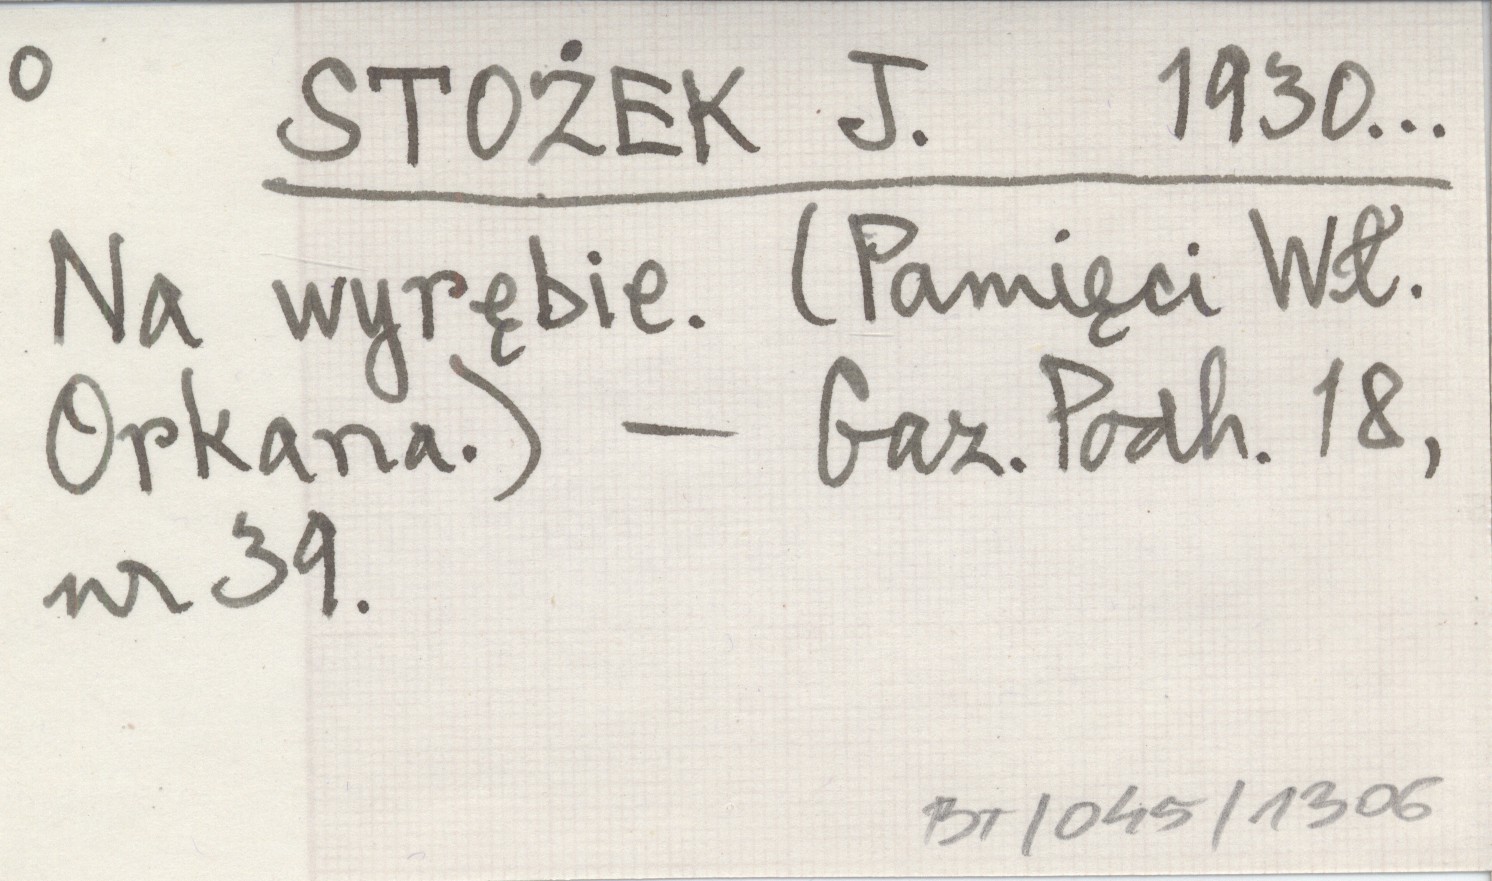 o STOŻEK J. 1930...
Na wyrębie. (Pamięci Wł.
Orkana.) — Gaz. Podh. 18,
nr 39.
BT/045/1306